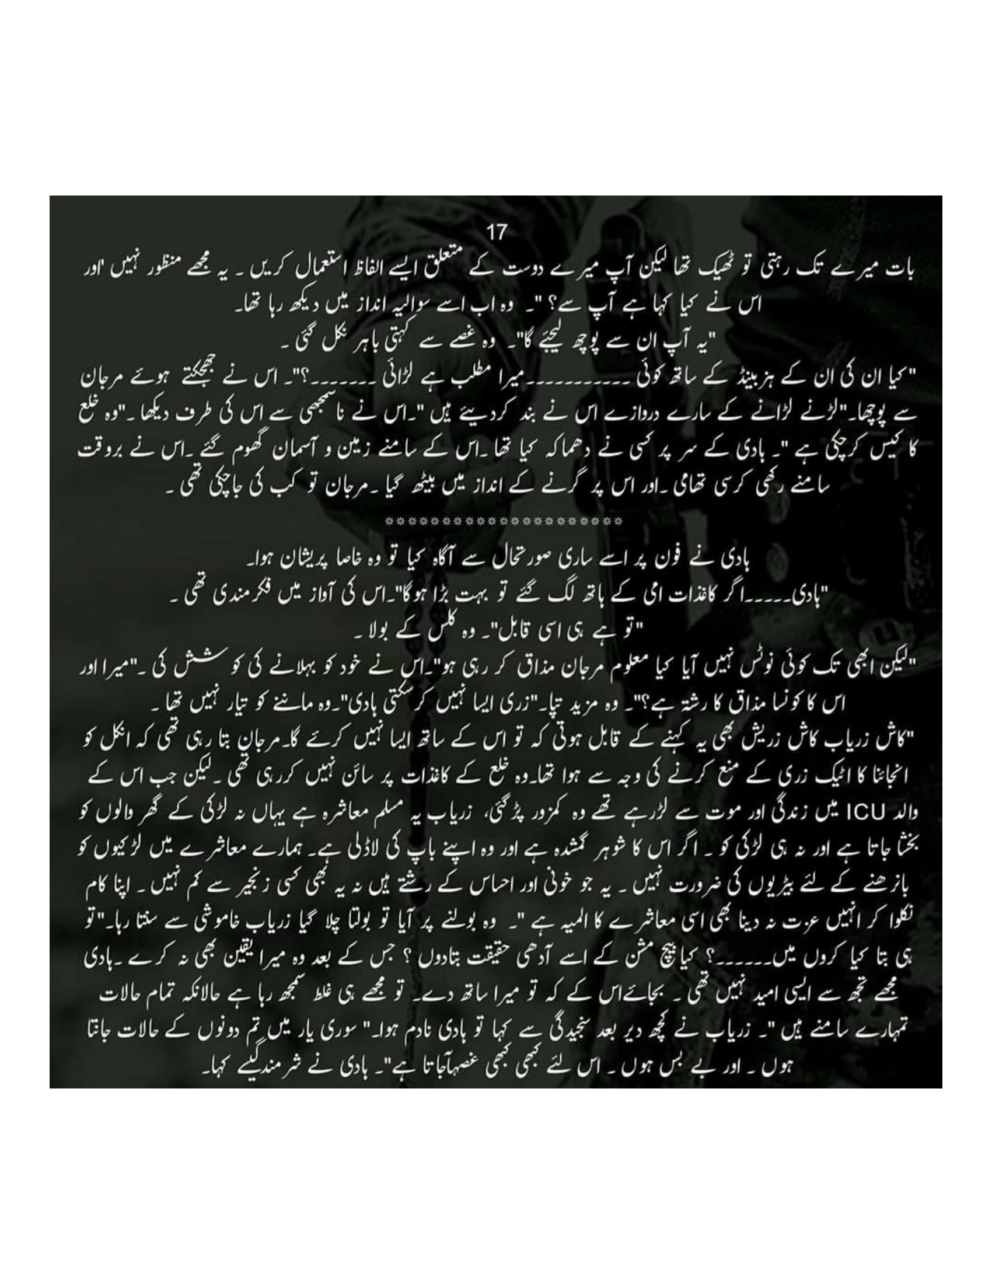 17
بات میرے تک رہتی تو ٹھیک تھا لیکن آپ میرے دوست کے متعلق ایسے الفاظ استعمال کریں ۔ یہ مجھے منظور نہیں 'اور
اس نے کیا کہا ہے آپ سے؟ "۔ وہ اب اسے سوالیہ انداز میں دیکھ رہا تھا۔
"یہ آپ ان سے پوچھ لیجئے گا"۔ وہ غصے سے کہتی باہر نکل گئی ۔
"کیا ان کی ان کے ہزبینڈ کے ساتھ کوئی ۔۔۔۔۔۔۔۔۔۔۔میرا مطلب ہے لڑائی ۔۔۔۔۔۔۔؟"۔ اس نے جھجکتے ہوئے مرجان
سے پوچھا۔"لڑنے لڑانے کے سارے دروازے اس نے بند کردیئے ہیں "۔اس نے ناسمجھی سے اس کی طرف دیکھا ۔"وہ خلع
کا کیس کرچکی ہے "۔ ہادی کے سر پر کسی نے دھماکہ کیا تھا ۔اس کے سامنے زمین و آسمان گھوم گئے ۔اس نے بروقت
سامنے رکھی کرسی تھامی ۔اور اس پر گرنے کے انداز میں بیٹھ گیا ۔مرجان تو کب کی جاچکی تھی ۔
☼☼☼☼☼☼☼☼☼☼☼☼☼☼☼☼☼☼☼☼☼
ہادی نے فون پر اسے ساری صورتحال سے آگاہ کیا تو وہ خاصا پریشان ہوا۔
"ہادی۔۔۔۔۔اگر کاغذات امی کے ہاتھ لگ گئے تو بہت بڑا ہوگا"۔اس کی آواز میں فکرمندی تھی ۔
"تو ہے ہی اسی قابل"۔ وہ کلس کے بولا ۔
"لیکن ابھی تک کوئی نوٹس نہیں آیا کیا معلوم مرجان مذاق کر رہی ہو"۔اس نے خود کو بہلانے کی کوشش کی ۔"میرا اور
اس کا کونسا مذاق کا رشتہ ہے؟"۔ وہ مزید تپا۔"زری ایسا نہیں کرسکتی ہادی"۔وہ ماننے کو تیار نہیں تھا ۔
"کاش زریاب کاش زریش بھی یہ کہنے کے قابل ہوتی کہ تو اس کے ساتھ ایسا نہیں کرے گا۔مرجان بتا رہی تھی کہ انکل کو
انجائنا کا اٹیک زری کے منع کرنے کی وجہ سے ہوا تھا۔وہ خلع کے کاغذات پر سائن نہیں کررہی تھی ۔لیکن جب اس کے
والد ICU میں زندگی اور موت سے لڑرہے تھے وہ کمزور پڑگئی، زریاب یہ مسلم معاشرہ ہے یہاں نہ لڑکی کے گھر والوں کو
بخشا جاتا ہے اور نہ ہی لڑکی کو ۔ اگر اس کا شوہر گمشدہ ہے اور وہ اپنے باپ کی لاڈلی ہے۔ ہمارے معاشرے میں لڑکیوں کو
باندھنے کے لئے بیڑیوں کی ضرورت نہیں ۔ یہ جو خونی اور احساس کے رشتے ہیں نہ یہ بھی کسی زنجیر سے کم نہیں ۔ اپنا کام
نکلوا کر انہیں عزت نہ دینا بھی اسی معاشرے کا المیہ ہے "۔ وہ بولنے پر آیا تو بولتا چلا گیا زریاب خاموشی سے سنتا رہا۔"تو
ہی بتا کیا کروں میں۔۔۔۔۔۔؟ کیا بیچ مشن کے اسے آدھی حقیقت بتادوں ؟ جس کے بعد وہ میرا یقین بھی نہ کرے ۔ہادی
مجھے تجھ سے ایسی امید نہیں تھی ۔ بجائےاس کے کہ تو میرا ساتھ دے۔ تو مجھے ہی غلط سمجھ رہا ہے حالانکہ تمام حالات
تمہارے سامنے ہیں "۔ زریاب نے کچھ دیر بعد سنجیدگی سے کہا تو ہادی نادم ہوا۔" سوری یار میں تم دونوں کے حالات جانتا
ہوں ۔ اور بے بس ہوں ۔ اس لئے کبھی کبھی غصہآجاتا ہے"۔ ہادی نے شرمندگیسے کہا۔